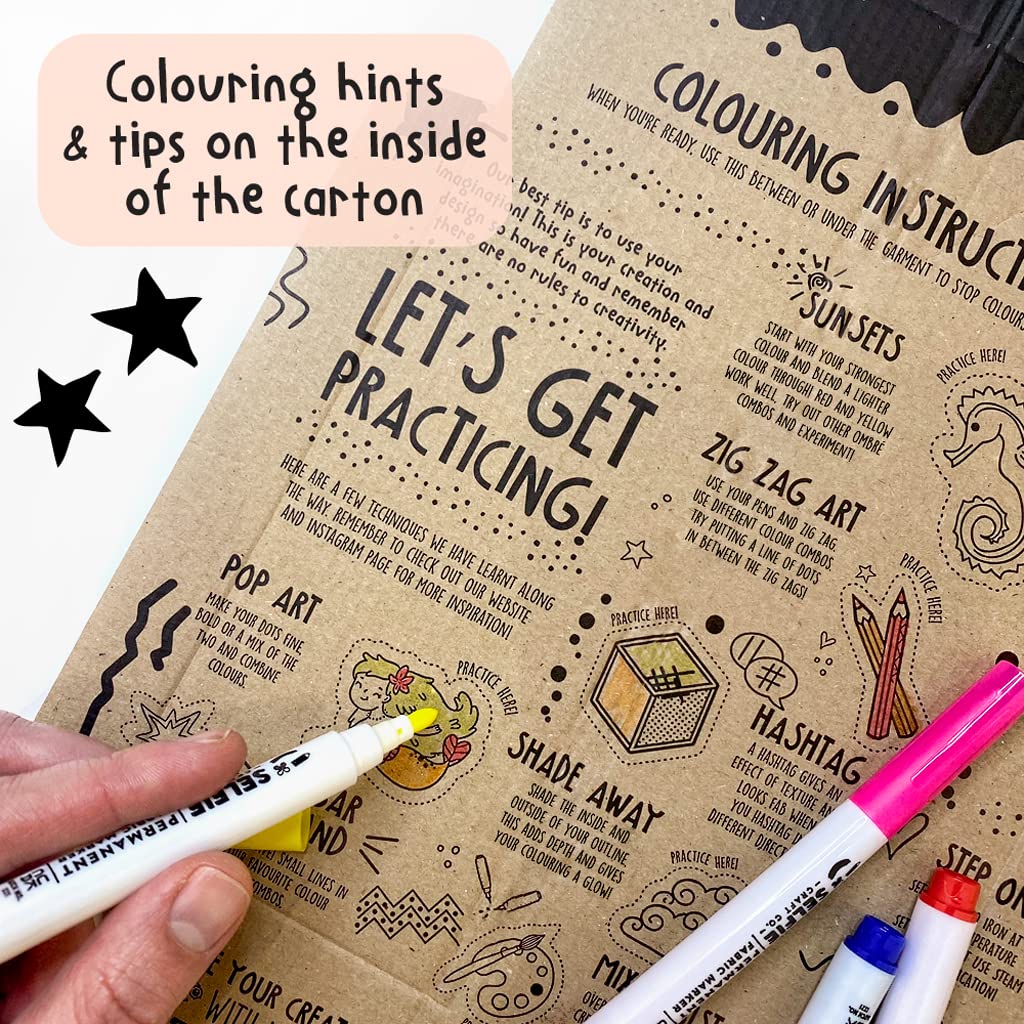 Colouring hints
& tips on the inside
of the carton
COLOURING
WHEN YOU'RE READY, USE THIS BETWEEN OR UNDER THE GARMENT TO STOP
Our best tip is to use your
imagination! This is your creation and
design so have fun and remember
there are no rules to creativity.
LET'S GET
PRACTICING!
HERE ARE A FEW TECHNIQUES WE HAVE LEARNT ALONG
THE WAY. REMEMBER TO CHECK OUT OUR WEBSITE
AND INSTAGRAM PAGE FOR MORE INSPIRATION!
SUNSETS
START WITH YOUR STRONGEST
COLOUR AND BLEND A LIGHTER
COLOUR THROUGH! RED AND YELLOW
WORK WELL. TRY OUT OTHER OMBRE
COMBOS AND EXPERIMENT!
PRACTICE HERE!
ZIG ZAG ART
USE YOUR PENS AND ZIG ZAG.
USE DIFFERENT COLOUR COMBOS.
TRY PUTTING A LINE OF DOTS
IN BETWEEN THE ZIG ZAGS!
PRACTICE HERE!
POP ART
MAKE YOUR DOTS FINE,
BOLD OR A MIX OF THE
TWO AND COMBINE
COLOURS.
PRACTICE HERE!
PRACTICE HERE!
#
SHADE AWAY
SHADE THE INSIDE AND
OUTSIDE OF YOUR OUTLINE.
THIS ADDS DEPTH AND GIVES
YOUR COLOURING A GLOW!
HASHTAG
A HASHTAG GIVES AN
EFFECT OF TEXTURE
LOOKS FAB WHEN
YOU HASHTAG
DIFFERENT
SMALL LINES IN
FAVOURITE COLOUR
COMBOS.
PRACTICE HERE!
STEP
IRON AT
USE STEAM
YOUR
WITH
SELFIE
PERMANENT
SELFIE
CRAFT CO.
FABRIC MARKER